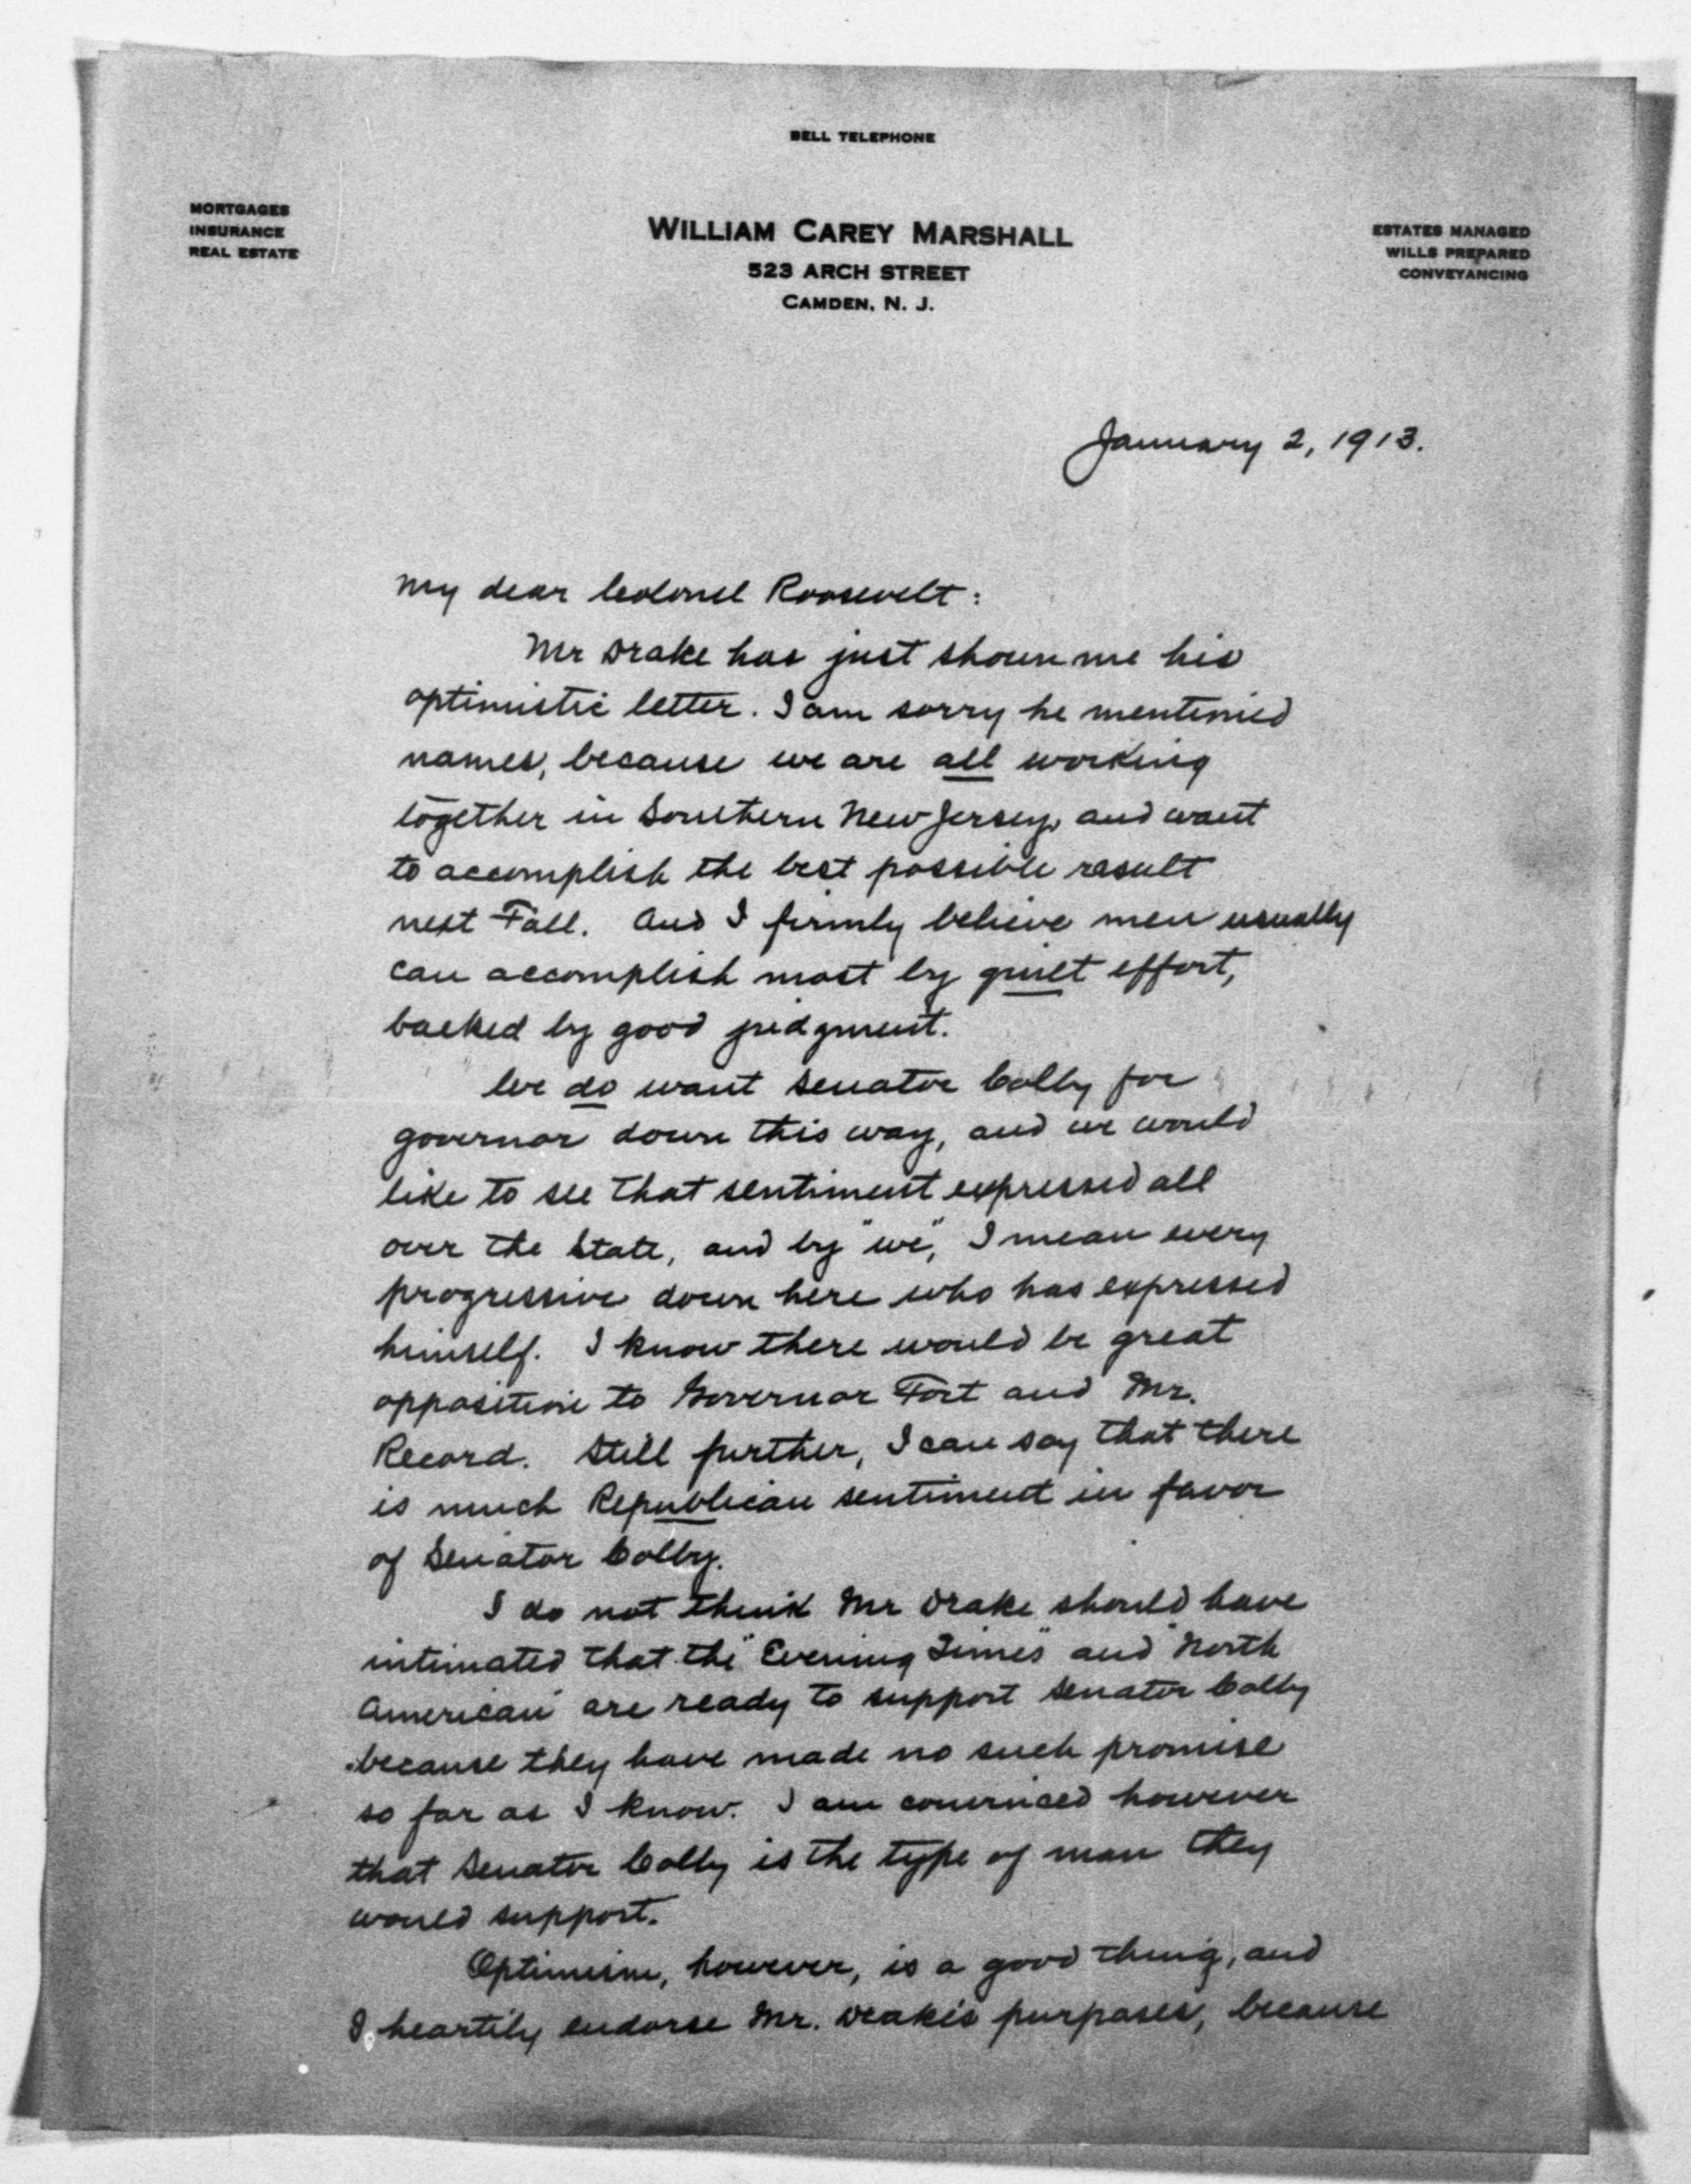 BELL TELEPHONE
MORTGAGES
INSURANCE
REAL ESTATE
WILLIAM CAREY MARSHALL
523 ARCH STREET
CAMDEN, N. J.
ESTATES MANAGED
WILLS PREPARED
CONVEYANCING
January 2, 1913.
My dear Colonel Roosevelt:
Mr Drake has just shown me his
optimistic letter. I am sorry he mentioned
names, because we are all working
together in Southern New Jersey, and want
to accomplish the best possible result
next Fall. And I firmly believe men usually
can accomplish most by quiet effort,
backed by good judgment.
We do want Senator Colby for
governor down this way, and we would
like to see that sentiment expressed all
over the State, and by "we", I mean every
progressive down here who has expressed
himself. I know there would be great
opposition to Governor Fort and Mr.
Record. Still further, I can say that there
is much Republican sentiment in favor
of Senator Colby.
I do not think Mr Drake should have
intimated that the "Evening Times" and "North
American" are ready to support Senator Colby
because they have made no such promise
so far as I know. I am convinced however
that Senator Colby is the type of man they
would support.
Optimism, however, is a good thing, and
I heartily endorse Mr. Drake's purposes, because